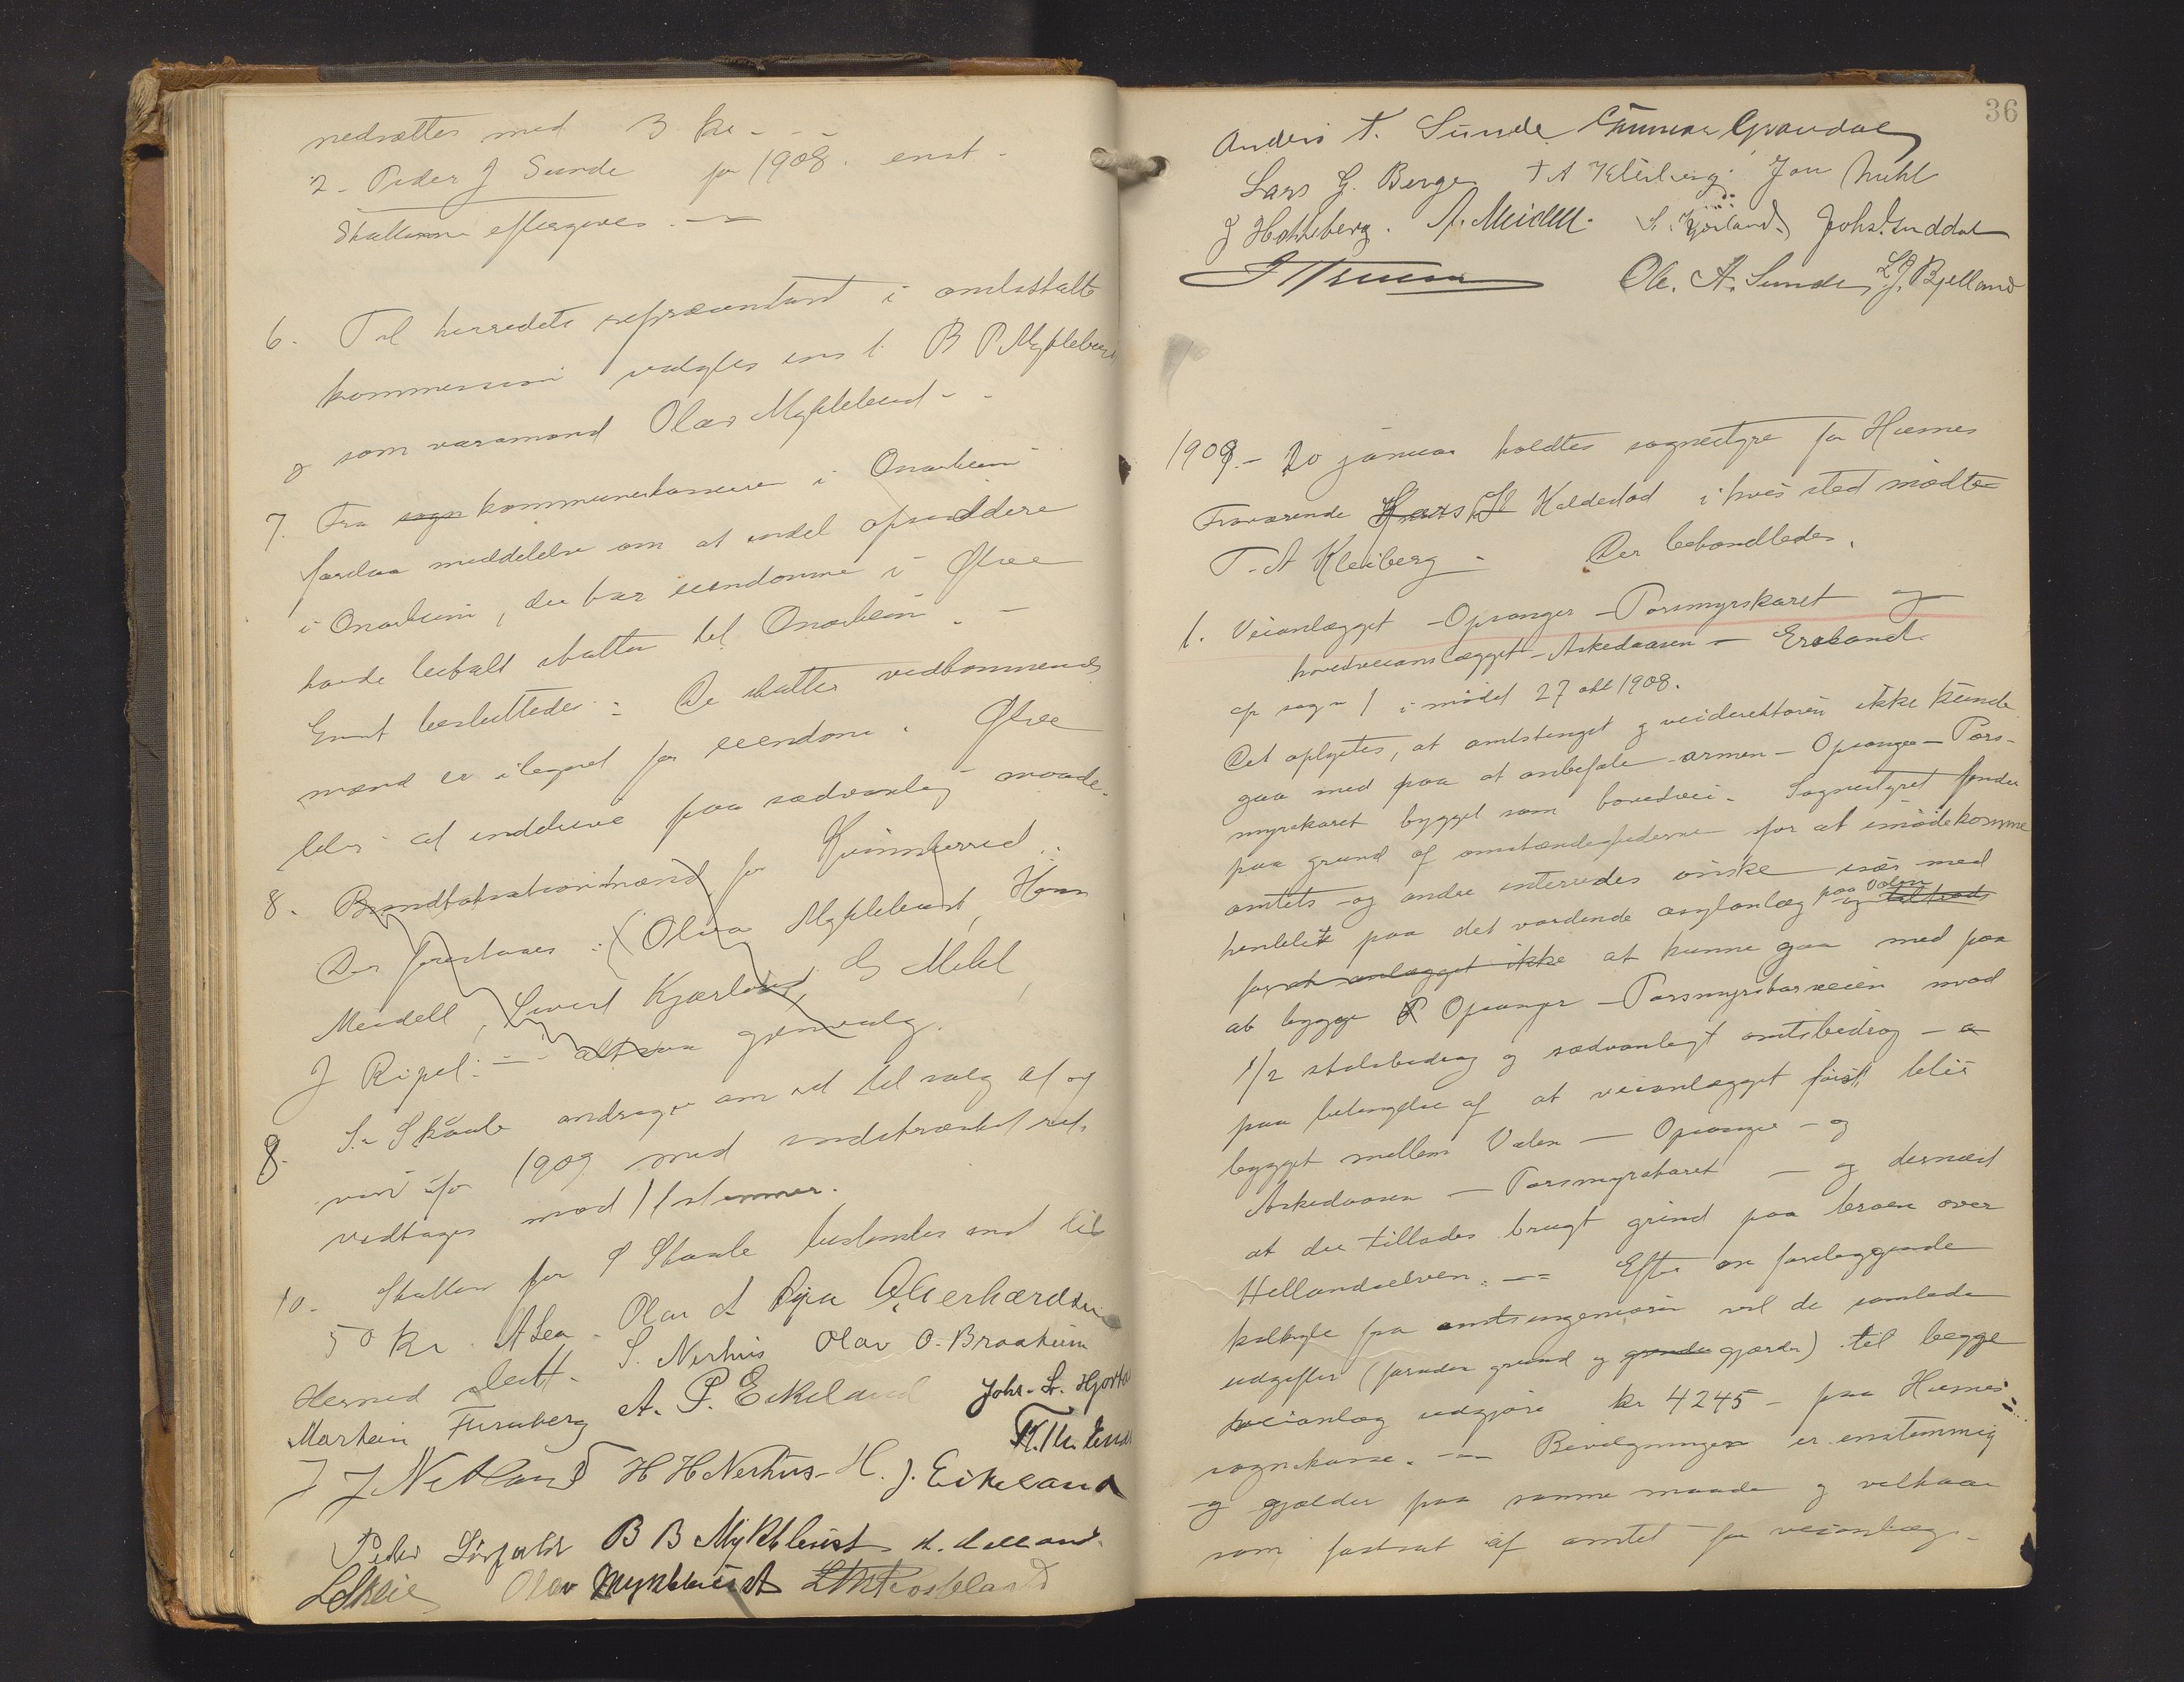 nedsættes med 3 kr - - -
2 - Peder J Sunde for 1908. enst -
Skatten eftergives. -
6. Til herredets repræsentant i amtsskatte
kommission valgtes enst. B P Myklebust
og som varamand Olav Myklebust - -
7. Fra sogn kommunekasserer i Onarheim
forelaa meddelelse om at endel opsiddere
i Onarheim, der har eiendomme i Ølve
havde betalt skatten til Onarheim. -
Enst besluttedes: De skatter vedkommende
mand er ilignet for eiendom i Ølve
blir at inddrive paa sædvanlig maade.
8. Brandtakstationsmænd for Kvinnherred.
Der foreslaaes: (Olav Myklebust, Hans
Meidell, Sivert Kjærland, G Mehl,
J Ripel: - altsaa gjenvalg.
8. S. Skaale andrager om ret til salg af og
vin for 1909 med indskrænket ret.
vedtages mod 1 stemmer.
10. Skatten for S Skaale bestemtes enst til
50 kr. A Lea. Olav A Øye A Gerhardsen
Hermed slutt. S. Nerhus Olav O. Braatheim
Martein Furuberg A. P. Eikeland Johs. L. Hjorta
J J Netland H H Nerhus - H. J. Eikeland
Peder Sørfeldt B B Myklebust
L Skeie Olav Myklebust
36
Anders T. Sunde Gunnar Gravdal
Lars G. Berge T A Kleiberg. Jon Mehl
J Hatteberg. A. Meidell. S. Kjærland Johs. Guddal
Ole. A. Sunde, L. J. Bjelland
1909. - 20 januar holdtes sognestyre for Husnes
Fraværende Lars H Haldestad i hvis sted mødte
T. A Kleiberg - Der behandledes.
1. Veianlægget - Opsanger - Porsmyrskaret og
hovedveianlægget - Askedaasen - Ersland
cfr sag 1 i mødet 27 okt 1908.
Det oplystes, at amtstinget og veidirektøren ikke kunde
gaa med paa at anbefale - armen - Opsanger - Pors-
myrskaret bygget som hovedvei. Sognestyret finder
paa grund af omstændighederne for at imødekomme
amtets og andre interesedes ønske især med
henblik paa det vordende asylanlæg paa Valen
for at anlægget ikke at kunne gaa med paa
at bygge Opsanger - Porsmyrskarveien mod
1/2 statsbidrag og sædvanlygt amtsbidrag - 
paa betingelse af at veianlægget først blir
bygget mellem Valen - Opsanger - og
Askedaasen - Porsmyrskaret - og dernæst
at der tillades brugt grind paa broen over
Hellandselven. - Efter en foreliggende
kalkyle fra amtsingeniøren vil de samlede
udgifter (foruden grund og gjærder) til begge
veianlæg udgjøre kr 4245 - paa Husnes
sognekasse. - Bevilgningen er enstemmig
og gjælder paa samme maade og vilkaar
som fastsat af amtet for veianlæg -